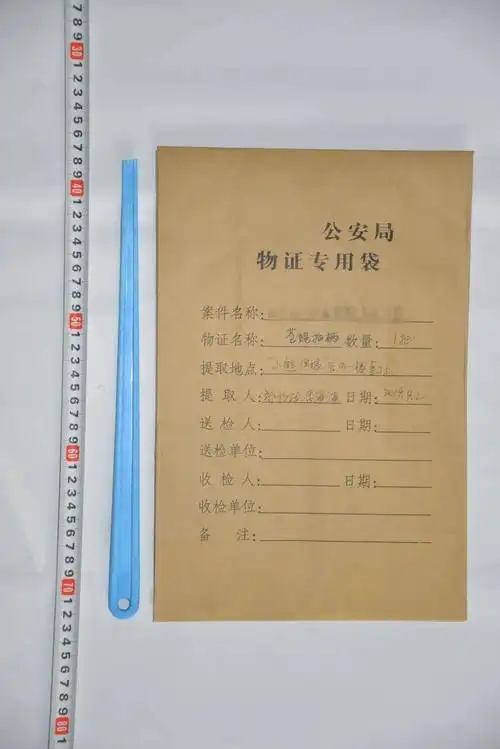 公安局
物证专用袋
案件名称:
物证名称: 苍蝇拍柄 数量: 1把
提取地点:
提 取 人: 日期:
送 检 人: 日期:
送检单位:
收 检 人: 日期:
收检单位:
备 注:
7 8 9 30 1 2 3 4 5 6 7 8 9 40 1 2 3 4 5 6 7 8 9 50 1 2 3 4 5 6 7 8 9 60 1 2 3 4 5 6 7 8 9 70 1 2 3 4 5 6 7 8 9 80